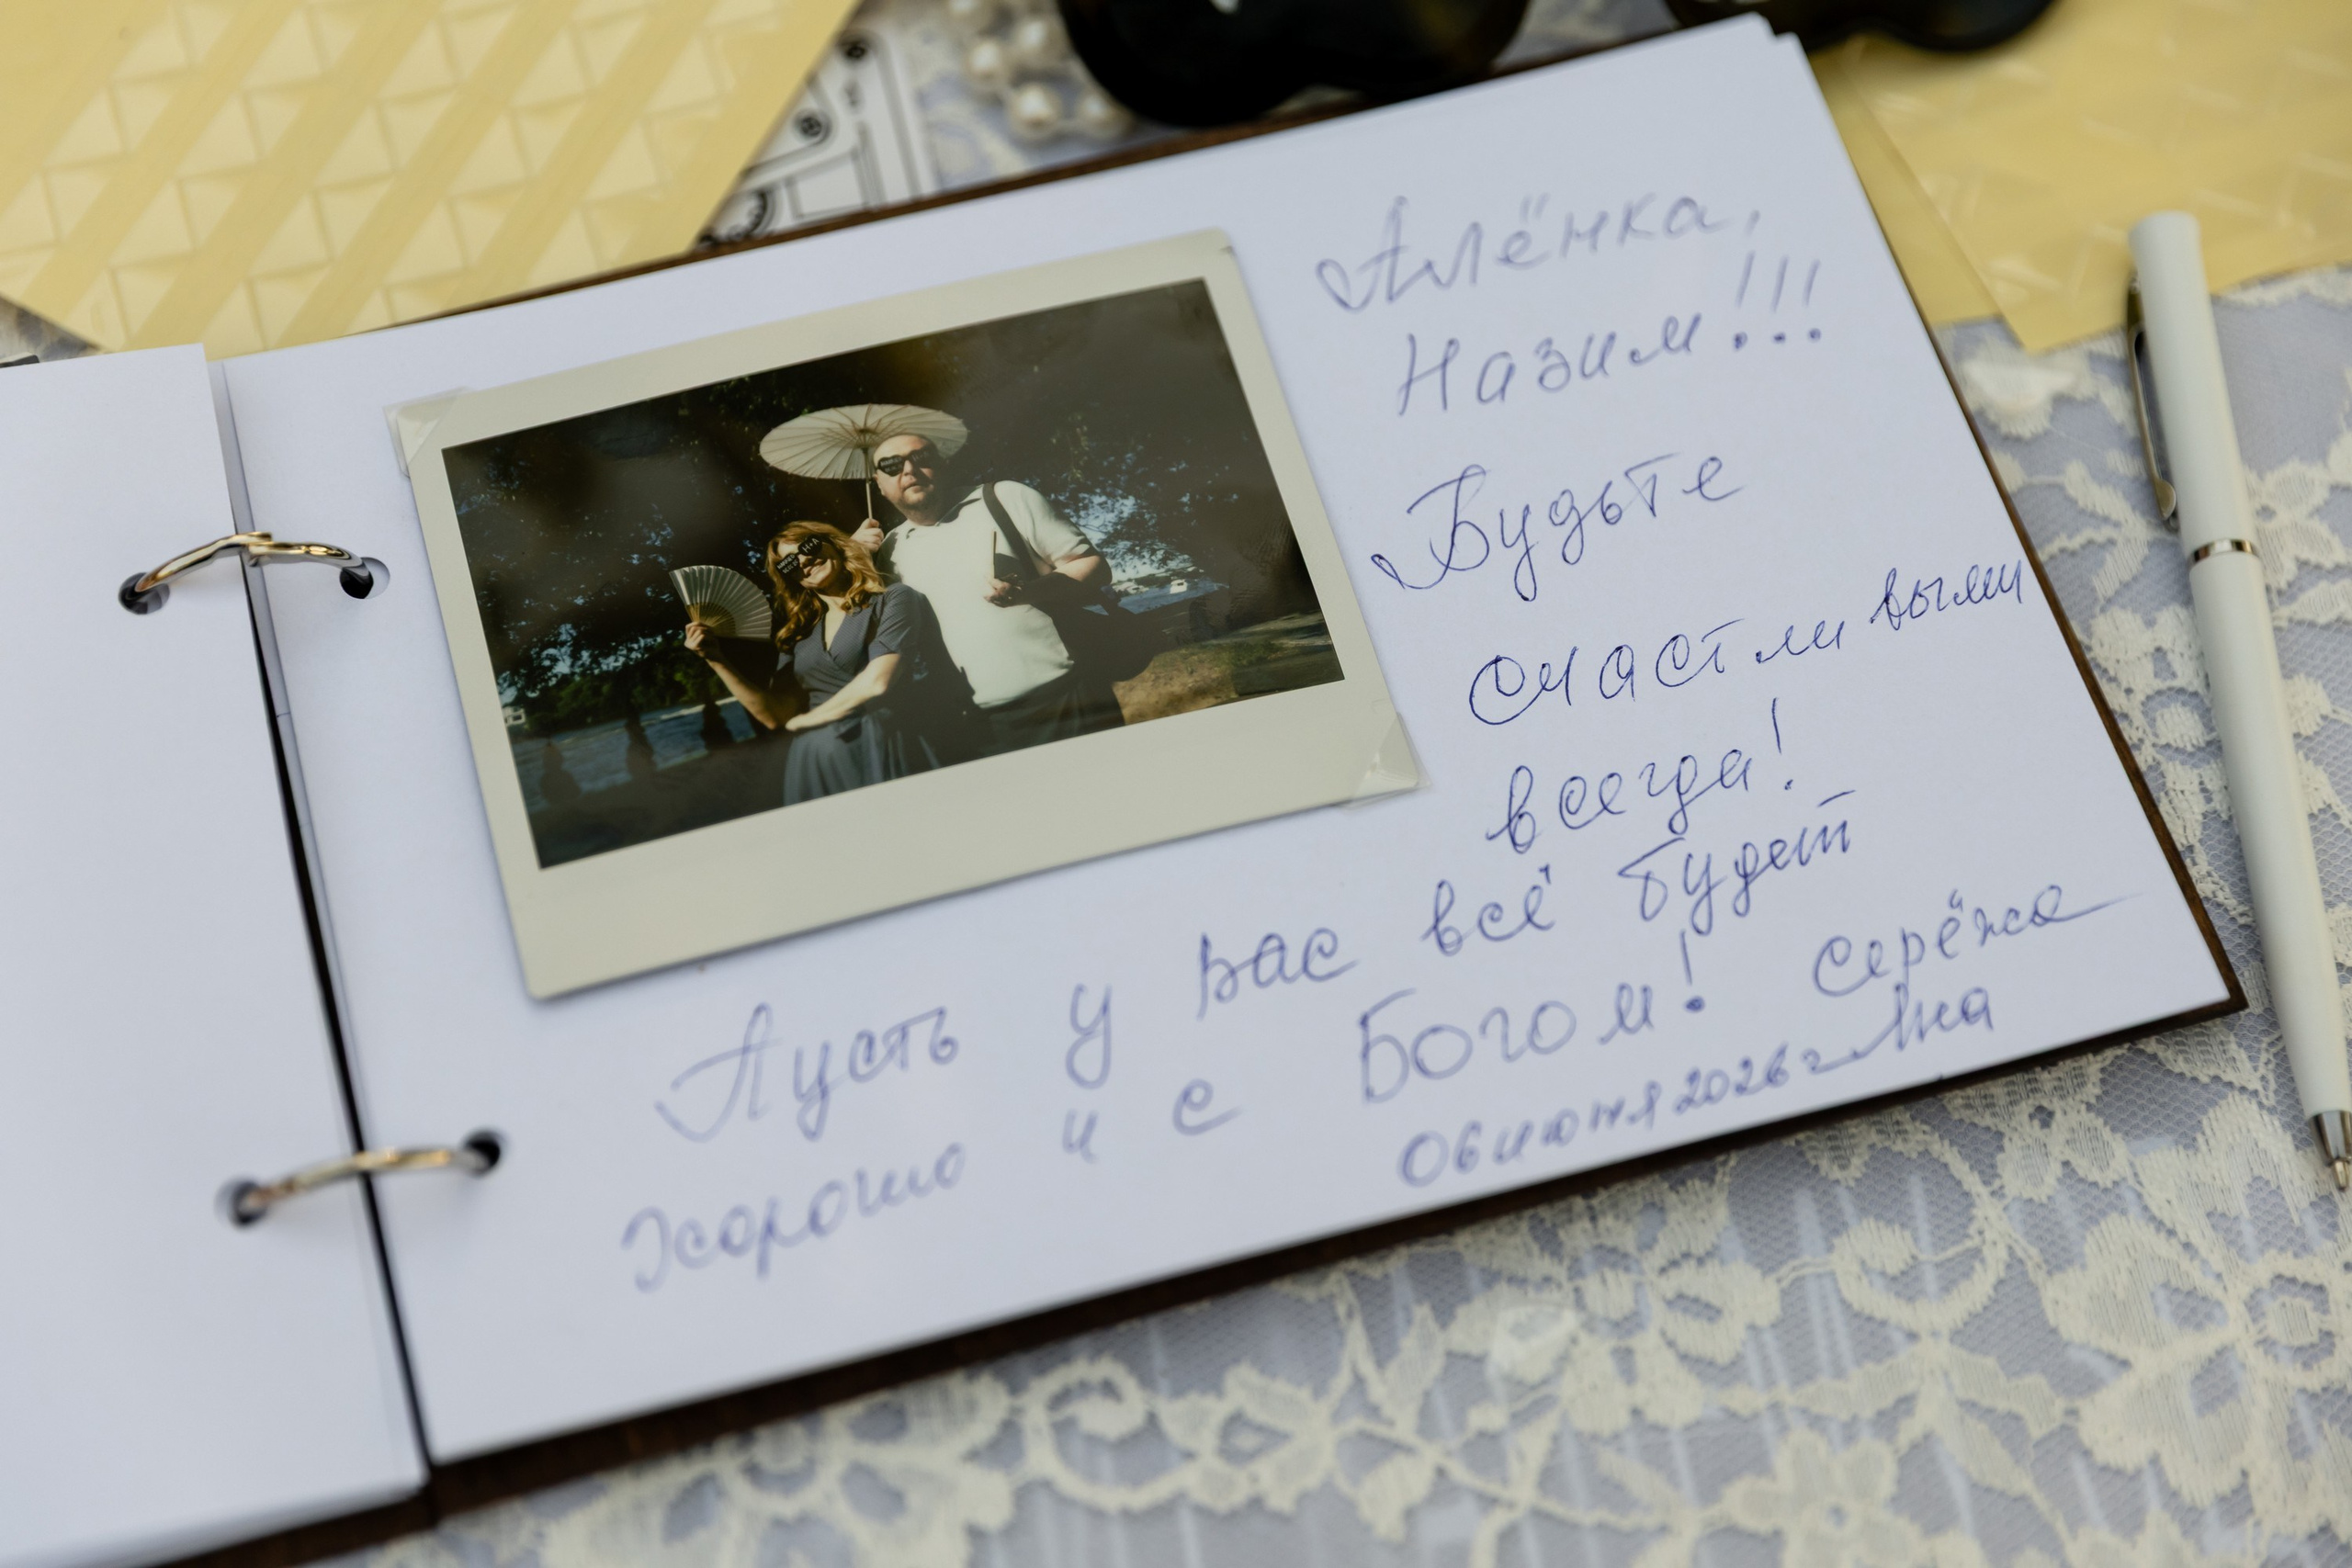 Алёнка,
Назим!!!
Будьте
счастливыми
всегда!
Пусть у вас всё будет
хорошо и с Богом!
Серёжа
Яна
06 июня 2026 г